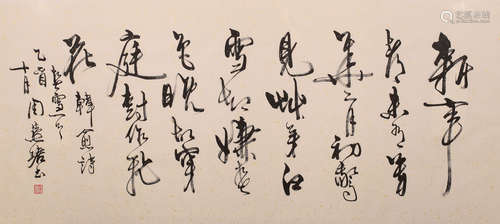 新年
都未有芳
華二月初驚
見草芽白
雪却嫌春
色晚故穿
庭樹作飛
花 韓愈詩
春雪
乙酉
十月 周慧珺书